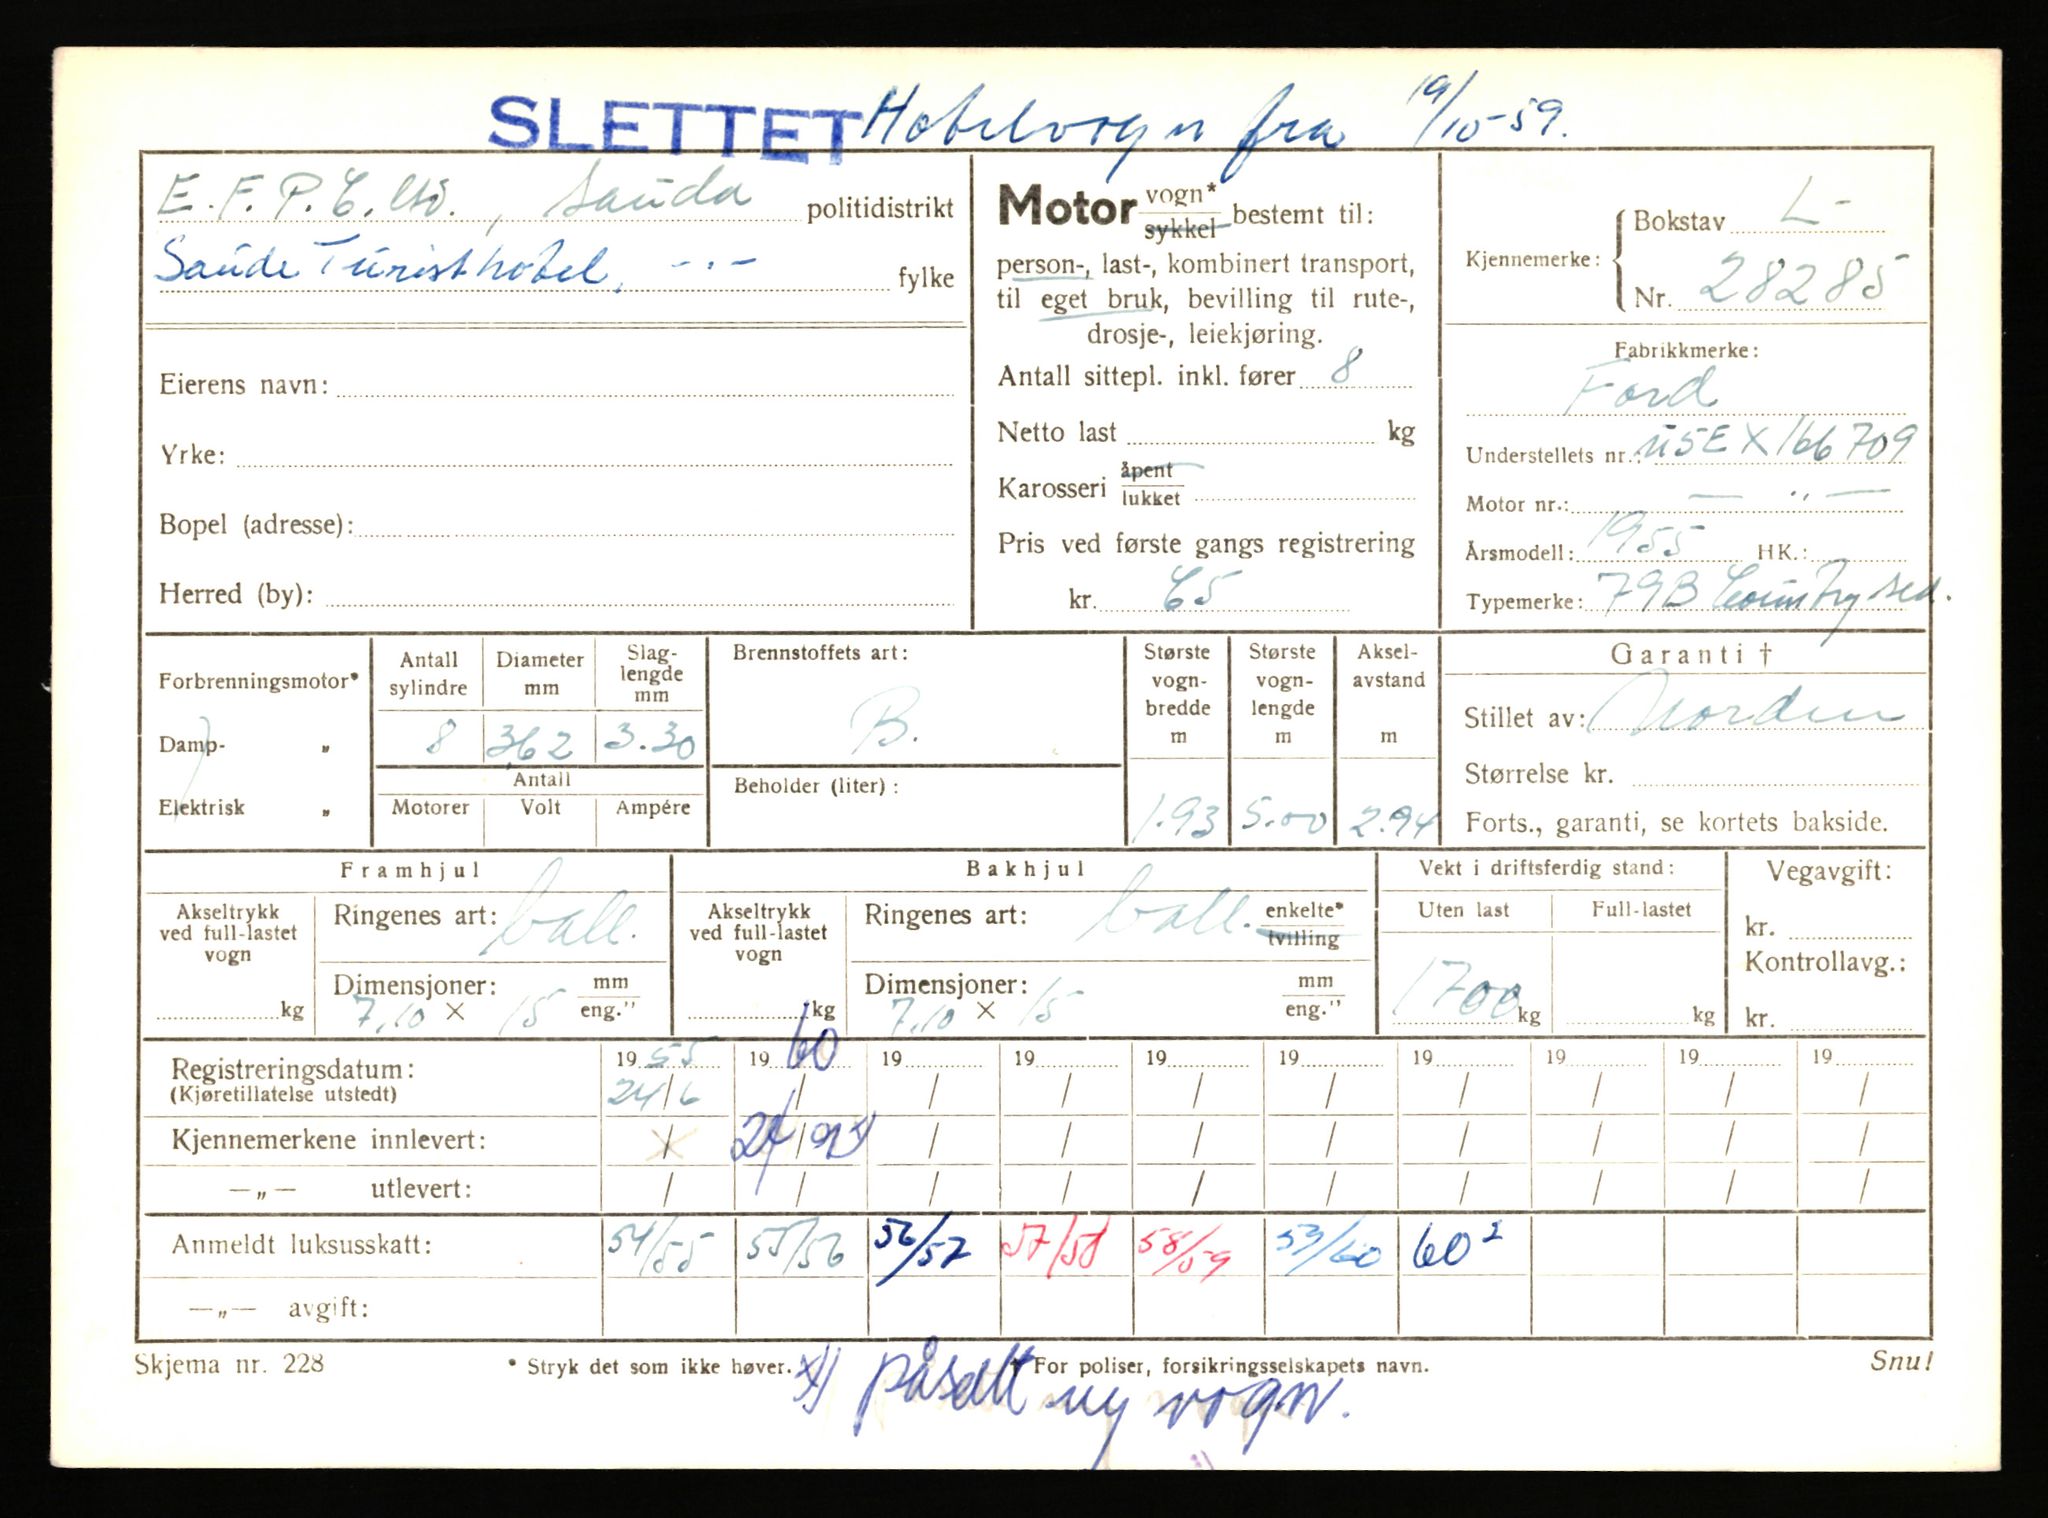 SLETTET Hotelvogn fra 19/10-59.
E.F.P.C. , Sauda politidistrikt
Saude Turisthotel, -"- fylke
Eierens navn:
Yrke:
Bopel (adresse):
Herred (by):
Motor vogn* sykkel bestemt til:
person-, last-, kombinert transport,
til eget bruk, bevilling til rute-,
drosje-, leiekjøring.
Antall sittepl. inkl. fører 8
Netto last kg
Karosseri åpent lukket
Pris ved første gangs registrering
kr.
Kjennemerke: Bokstav L-
Nr. 28285
Fabrikkmerke:
Ford
Understellets nr.: U5EX166709
Motor nr.: — " —
Årsmodell: 1955 HK.:
Typemerke: 79B Country sed.
Forbrenningsmotor*
Damp- „
Elektrisk „
Antall sylindre 8
Diameter mm 3.62
Slaglengde mm 3.30
Antall
Motorer Volt Ampére
Brennstoffets art:
B.
Beholder (liter):
Største vognbredde m 1.93
Største vognlengde m 5.00
Akselavstand m 2.94
Garanti †
Stillet av: Norden
Størrelse kr.
Forts., garanti, se kortets bakside.
Framhjul
Akseltrykk ved full-lastet vogn kg
Ringenes art: ball.
Dimensjoner: mm eng."
7.10 × 15
Bakhjul
Akseltrykk ved full-lastet vogn kg
Ringenes art: ball. enkelte* tvilling
Dimensjoner: mm eng."
7.10 × 15
Vekt i driftsferdig stand:
Uten last Full-lastet
1700 kg kg
Vegavgift:
kr.
Kontrollavg.:
kr.
Registreringsdatum: 1955 1960 19 19 19 19 19 19 19 19
(Kjøretillatelse utstedt) 24/6 / / / / / / / / /
Kjennemerkene innlevert: / 24/ x) / / / / / / / /
—„— utlevert: / / / / / / / / / /
Anmeldt luksusskatt: 54/55 55/56 56/57 57/58 58/59 59/60 60²
—„— avgift:
Skjema nr. 228 * Stryk det som ikke høver. † For poliser, forsikringsselskapets navn. Snu!
x) påsatt ny vogn.